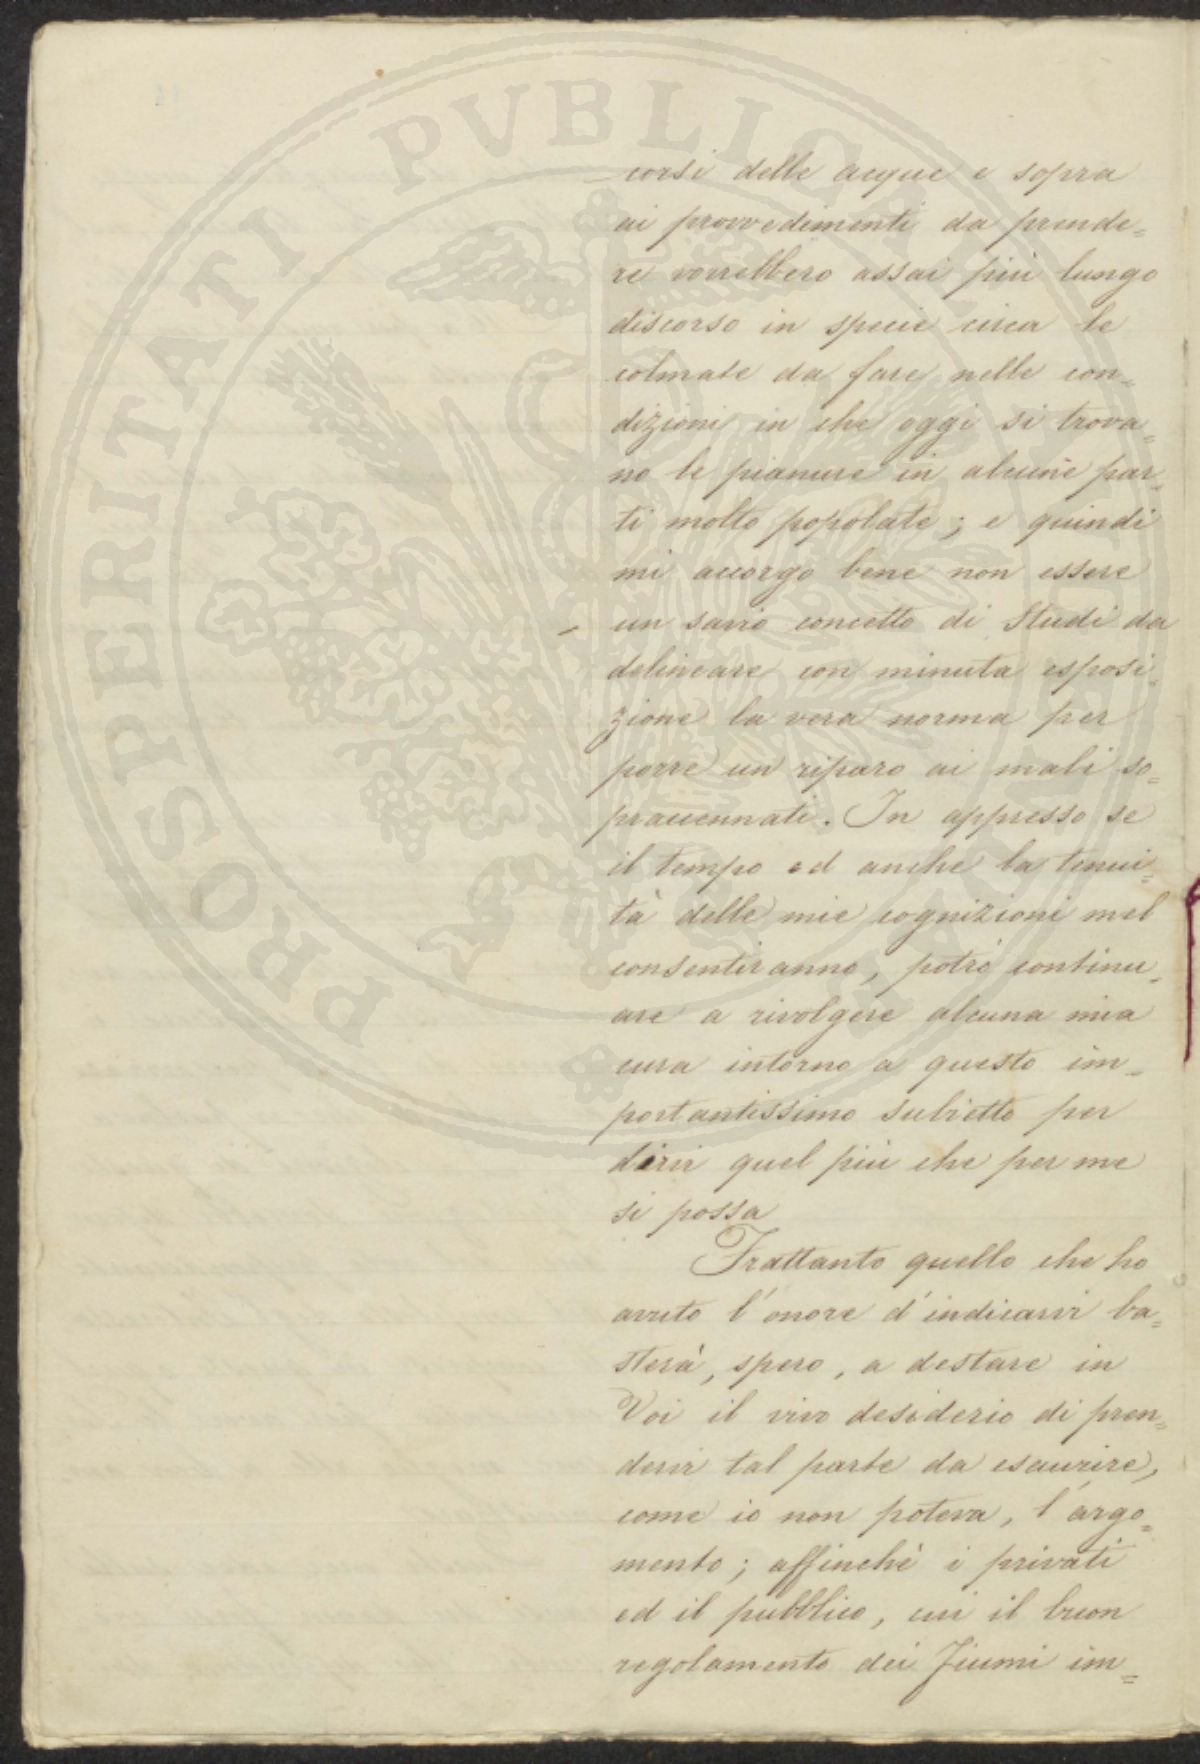 corsi delle acque e sopra
ai provvedimenti da prende=
re vorrebbero assai più lungo
discorso in specie circa le
colmate da fare nelle con=
dizioni in che oggi si trova=
no le pianure in alcune par=
ti molto popolate; e quindi
mi accorgo bene non essere
un savio concetto di Studi da
delineare con minuta esposi=
zione la vera norma per
porre un riparo ai mali so=
praccennati. In appresso se
il tempo ed anche la tenui=
tà delle mie cognizioni mel
consentiranno, potrò continu=
are a rivolgere alcuna mia
cura intorno a questo im=
portantissimo subietto per
dirvi quel più che per me
si possa
Frattanto quello che ho
avuto l'onore d'indicarvi ba=
sterà, spero, a destare in
Voi il vivo desiderio di pren=
dervi tal parte da esaurire,
come io non poteva, l'argo=
mento; affinchè i privati
ed il pubblico, cui il buon
regolamento dei Fiumi im=
PROSPERITATI PVBLICAE